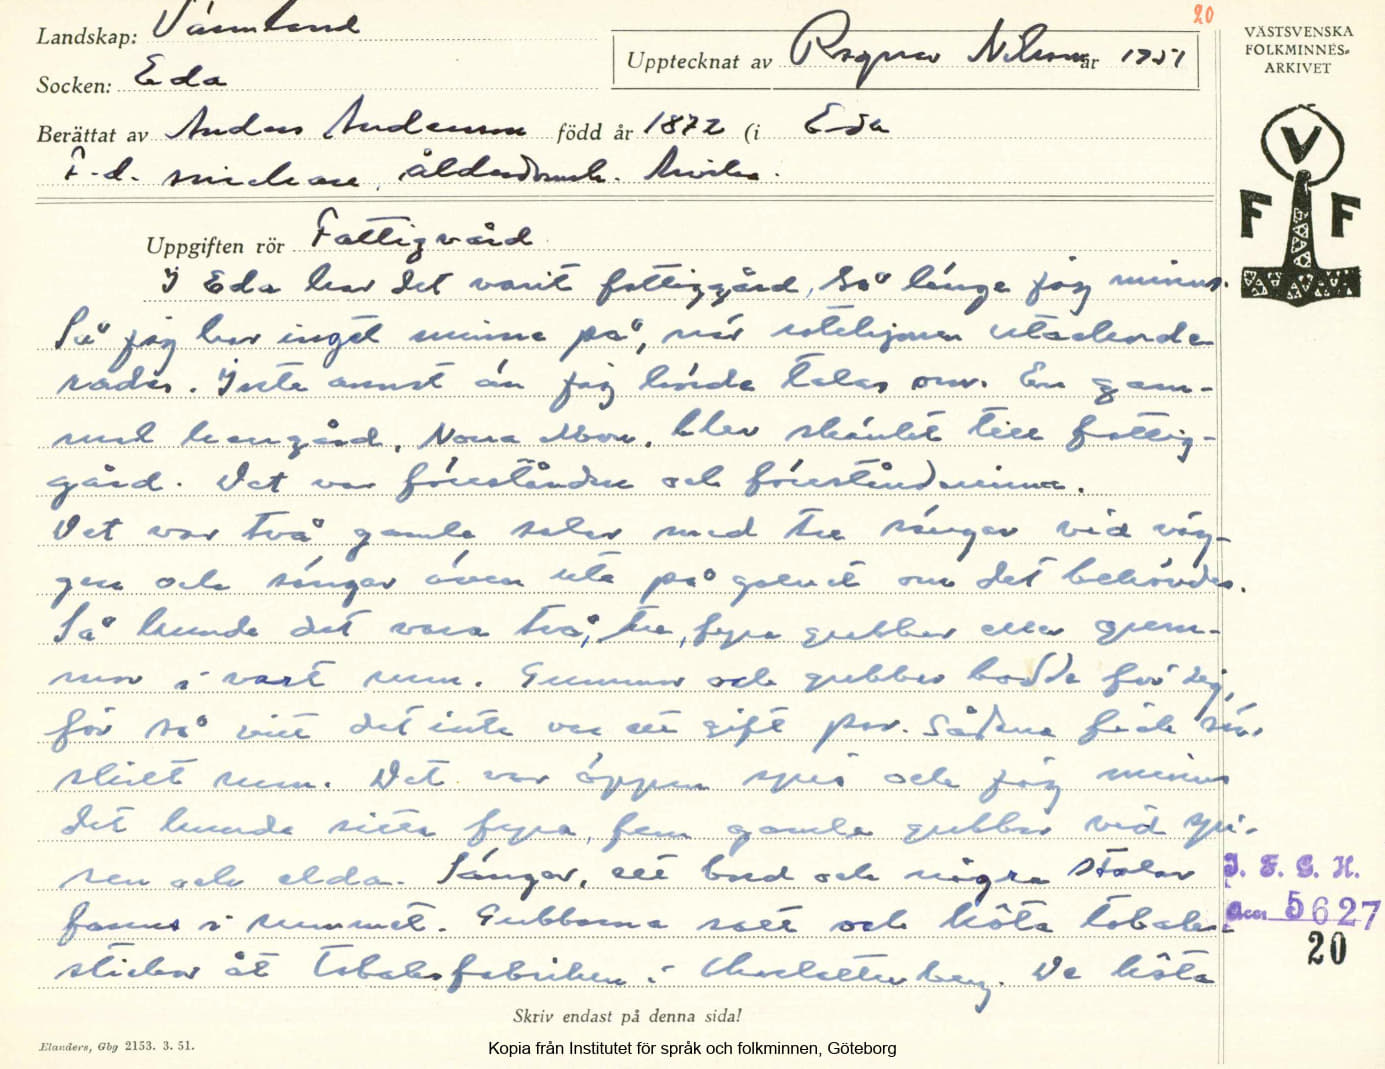 20
Landskap: Värmland
VÄSTSVENSKA
FOLKMINNES-
ARKIVET
Upptecknat av Ragnar Nilsson år 1951
Socken: Eda
Berättat av Anders Andersson född år 1872 (i Eda
F.d. snickare, ålderdomsh. Arvika.
V
F F
Uppgiften rör Fattigvård
I Eda har det varit fattiggård, så länge jag minns.
Så jag har inget minne på, när rotehjonen utackorde-
rades. Inte annat än jag hörde talas om. En gam-
mal herrgård, Norra Moon, blev skänkt till fattig-
gård. Det var föreståndare och föreståndarinna.
Det var två gamla salar med tre sängar vid väg-
gen och sängar även ute på golvet om det behövdes.
Så kunde det vara två, tre, fyra gubbar eller gum-
mor i vart rum. Gummor och gubbar bodde för sig,
för så vitt det inte var ett gift par. Sådana fick sär-
skilt rum. Det var öppen spis och jag minns
det kunde sitta fyra, fem gamla gubbar vid spi-
sen och elda. Sängar, ett bord och några stolar
fanns i rummet. Gubbarna satt och höta tobaks-
stickor åt tobaksfabriken i Charlottenberg. De höta
I. F. G. H.
Acc. 5627
20
Skriv endast på denna sida!
Elanders, Gbg 2153. 3. 51.
Kopia från Institutet för språk och folkminnen, Göteborg